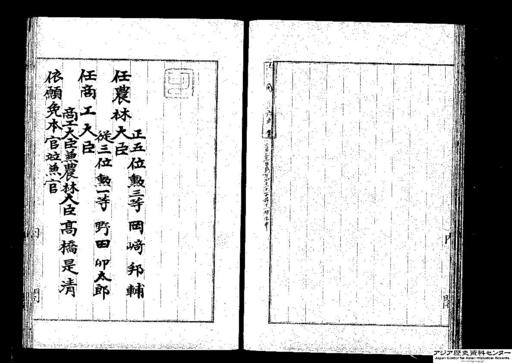 正五位勲三等岡崎邦輔
任農林大臣
従三位勲一等野田卯太郎
任商工大臣
商工大臣兼農林大臣高橋是清
依願免本官並兼官
内閣
内閣
アジア歴史資料センター
Japan Center for Asian Historical Records